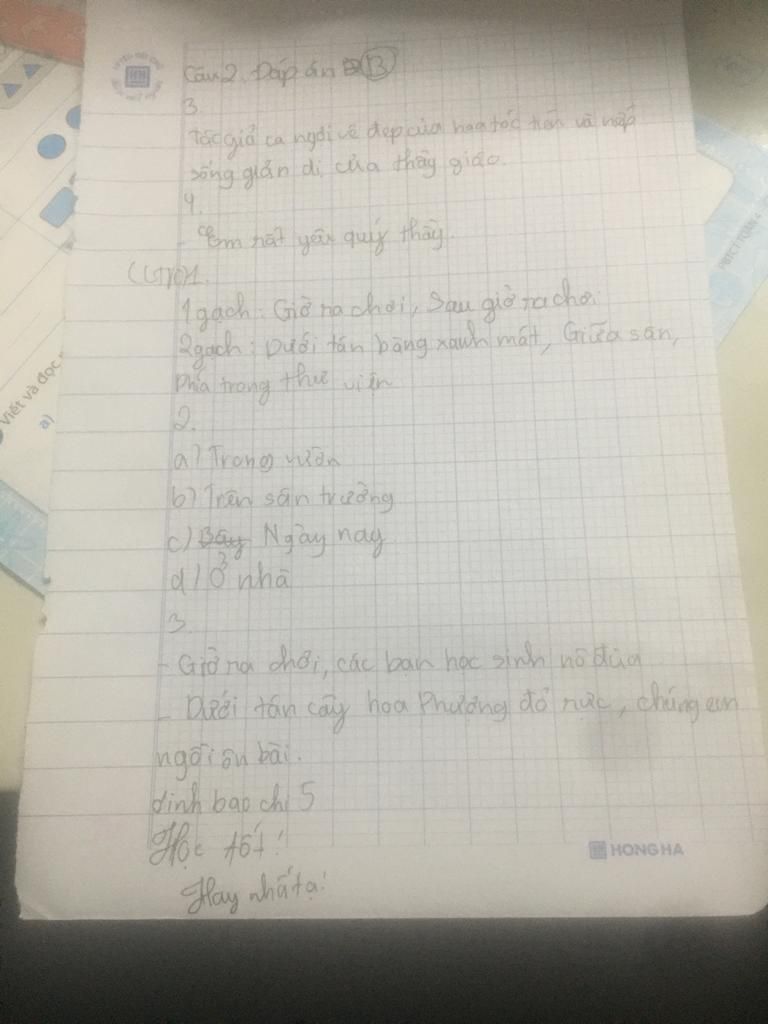 Câu 2. Đáp án B
3.
Tác giả ca ngợi vẻ đẹp của hoa tóc tiên và nếp
sống giản dị của thầy giáo.
4.
- Em rất yêu quý thầy.
1.
1 gạch: Giờ ra chơi, Sau giờ ra chơi
2 gạch: Dưới tán bàng xanh mát, Giữa sân,
Phía trong thư viện
2.
a) Trong vườn
b) Trên sân trường
c) Ngày nay
d) Ở nhà
3.
- Giờ ra chơi, các bạn học sinh nô đùa
- Dưới tán cây hoa Phượng đỏ rực, chúng em
ngồi ôn bài.
dinh bao chi 5
Học tốt!
Hay nhất ạ!
HONG HA
Viết và đọc
a)
PBTCT TOÁN 4